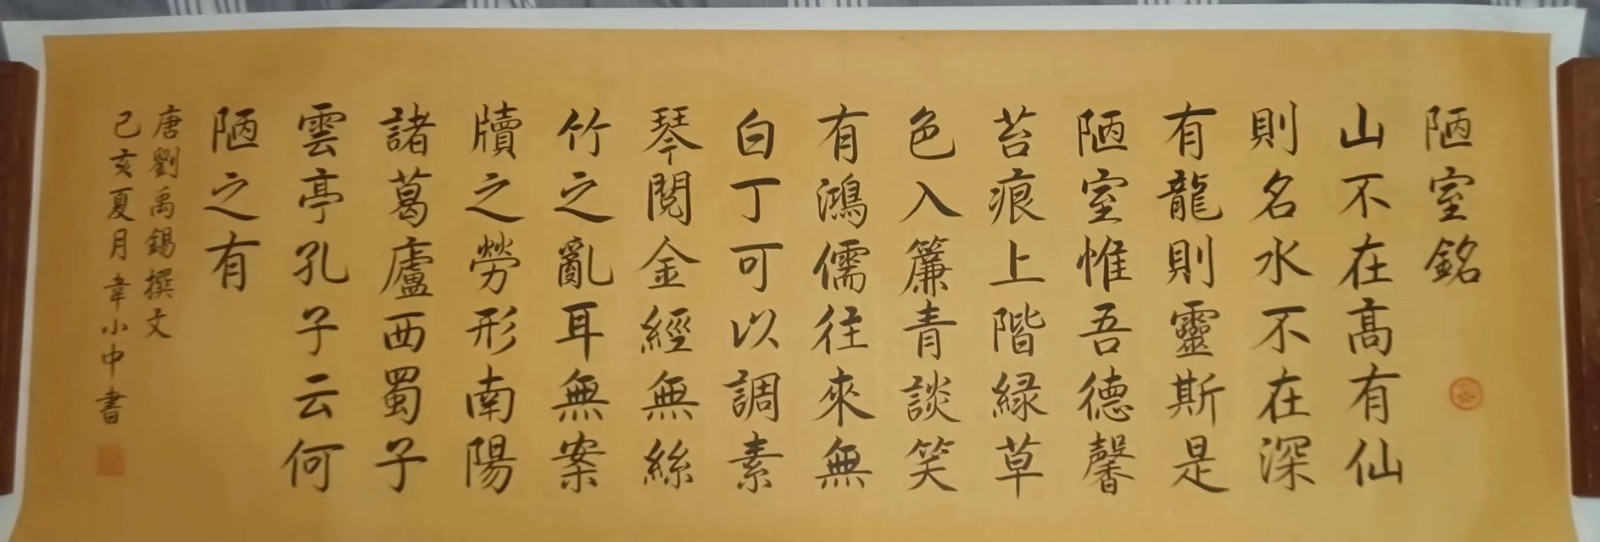 陋室銘
山不在高有仙
則名水不在深
有龍則靈斯是
陋室惟吾德馨
苔痕上階緑草
色入簾青談笑
有鴻儒往來無
白丁可以調素
琴閱金經無絲
竹之亂耳無案
牘之勞形南陽
諸葛廬西蜀子
雲亭孔子云何
陋之有
唐劉禹錫撰文
己亥夏月韋小中書